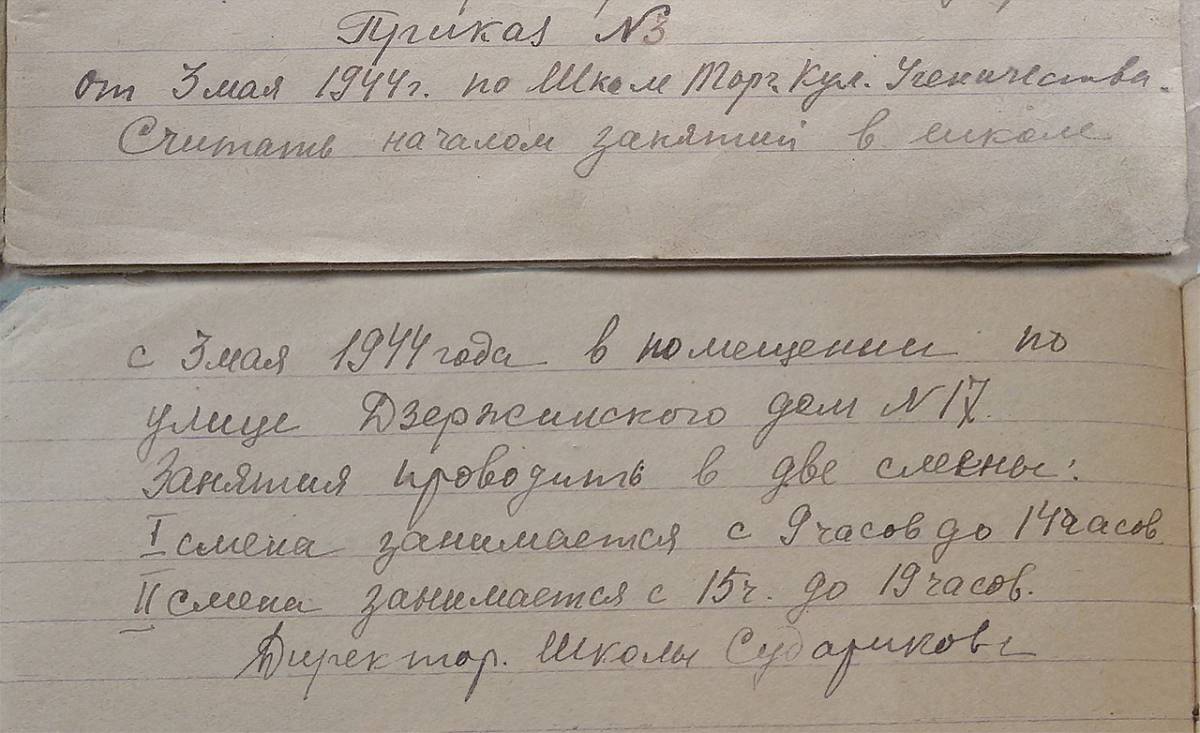 Приказ N3
от 3 мая 1944г. по Школе Торг. Кул. Ученичества.
Считать началом занятий в школе
с 3 мая 1944 года в помещении по
улице Дзержинского дом N 17.
Занятия проводить в две смены:
I смена занимается с 9 часов до 14 часов
II смена занимается с 15ч. до 19 часов.
Директор. Школы Судариков